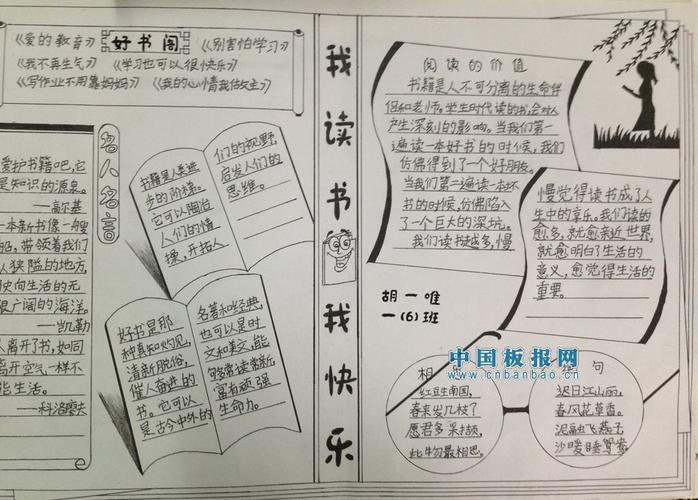 《爱的教育》 好书阁 《别害怕学习》
《我不再生气》 《学习也可以很快乐》
《写作业不用靠妈妈》 《我的心情我做主》
爱护书籍吧,它
是知识的源泉。
——高尔基
一本新书像一艘
船,带领着我们
从狭隘的地方,
驶向生活的无
限广阔的海洋。
——凯勒
人离开了书,如同
离开空气一样不
能生活。
——科洛廖夫
名人名言
书籍是人类进
步的阶梯。
它可以陶冶
人们的情
操,开拓人
们的视野,
启发人们的
思维。
好书是那
种真知灼见,
清新脱俗,
催人奋进的
书。它可以
是古今中外的
名著和经典,
也可以是时
文和美文,能
够常读常新
富有顽强
生命力。
我读书 我快乐
阅读的价值
书籍是人不可分离的生命伴
侣和老师。学生时代读的书,会对人
产生深刻的影响。当我们第一
遍读一本好书的时候,我们
仿佛得到了一个好朋友。
当我们第一遍读一本坏
书的时候,仿佛陷入
了一个巨大的深坑。
我们读书越多,慢
慢觉得读书成了人
生中的享乐。我们读的
愈多,就愈亲近世界,
就愈明白了生活的
意义,愈觉得生活的
重要。
胡一唯
一(6)班
中国板报网
www.cnbanbao.cn
相思
红豆生南国,
春来发几枝?
愿君多采撷,
此物最相思。
绝句
迟日江山丽,
春风花草香。
泥融飞燕子,
沙暖睡鸳鸯。